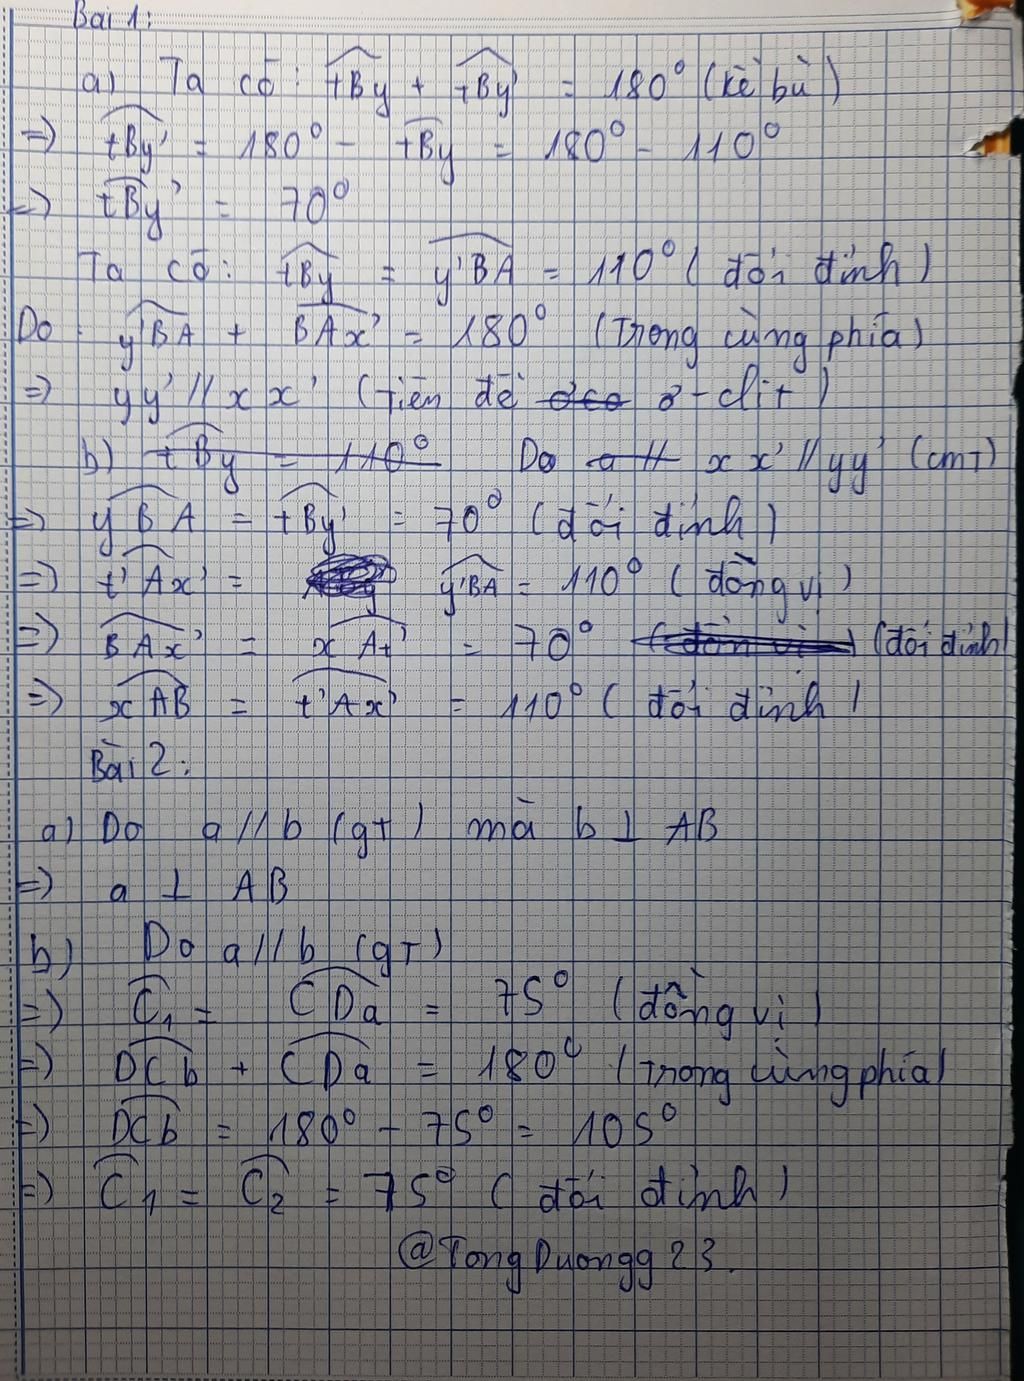 Bài 1:
a) Ta có: tBy + tBy' = 180° (kề bù)
=> tBy' = 180° - tBy = 180° - 110°
=> tBy' = 70°
Ta có: tBy = y'BA = 110° (đối đỉnh)
Do y'BA + BAx' = 180° (Trong cùng phía)
=> yy' // xx' (Tiên đề ơ-clit)
b) tBy = 110° Do a // xx' // yy' (cmT)
=> yBA = tBy' = 70° (đối đỉnh)
=> t'Ax' = y'BA = 110° (đồng vị)
=> BAx' = xAt' = 70° (đồng vị) (đối đỉnh)
=> xAB = t'Ax' = 110° (đối đỉnh)
Bài 2:
a) Do a // b (gT) mà b ⊥ AB
=> a ⊥ AB
b) Do a // b (gT)
=> C₁ = CDa = 75° (đồng vị)
=> DCb + CDa = 180° (Trong cùng phía)
=> DCb = 180° - 75° = 105°
=> C₁ = C₂ = 75° (đối đỉnh)
@TongDuongg23.